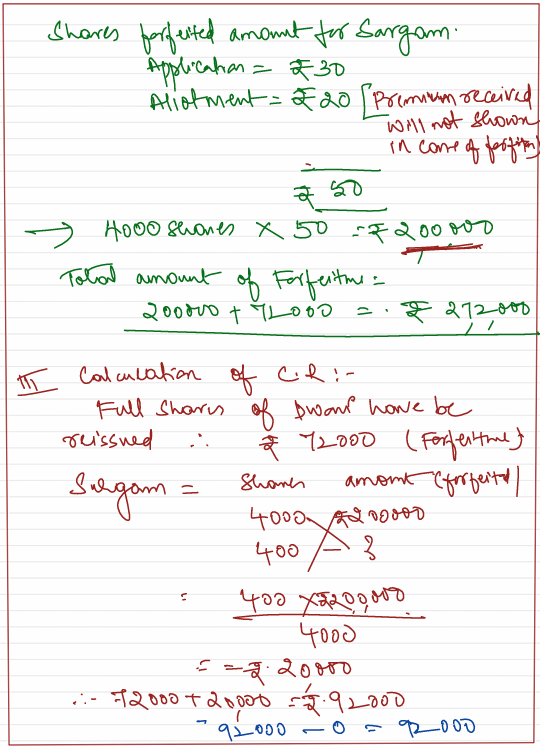 Shares forfeited amount for Sargam.
Application = ₹30
Allotment = ₹20 [Premium received
will not shown
in case of forfiture)
₹ 50
→ 4000 shares × 50 = ₹200000
Total amount of Forfeiture =
200000 + 72000 = ₹ 272000
III Calculation of C.R :-
Full Shares of Dwani have be
reissued ∴ ₹ 72000 (Forfeiture)
Surgam = Shares amount (forfeited)
4000 ₹200000
400 - ?
= 400 × ₹200,000
4000
= = ₹. 20000
∴- 72000 + 20000 = ₹.92000
= 92000 - 0 = 92000